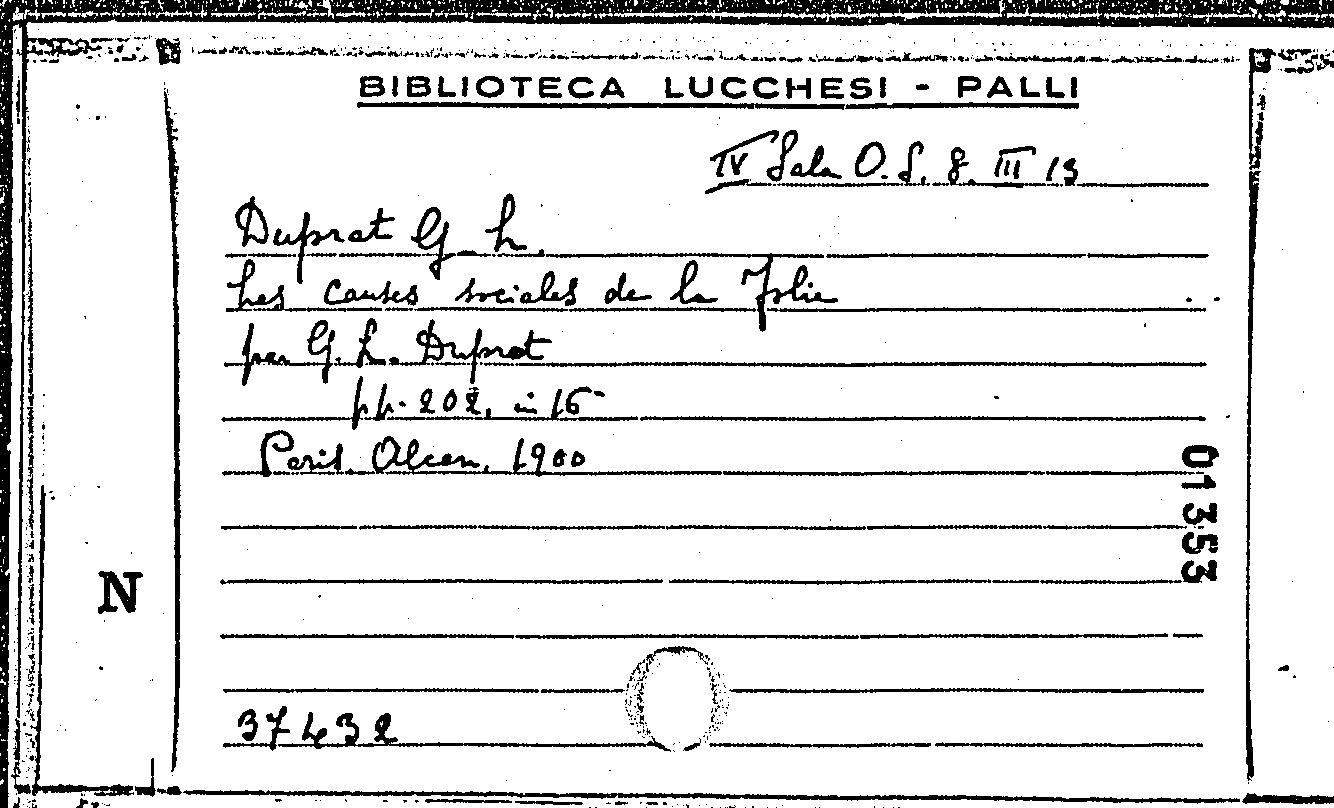 BIBLIOTECA LUCCHESI - PALLI
IV Sala O. S. 8. III 13
Duprat G. L.
Les causes sociales de la Folie
par G. L. Duprat
pp. 202, in 16
Paris. Alcan. 1900
01353
N
37432